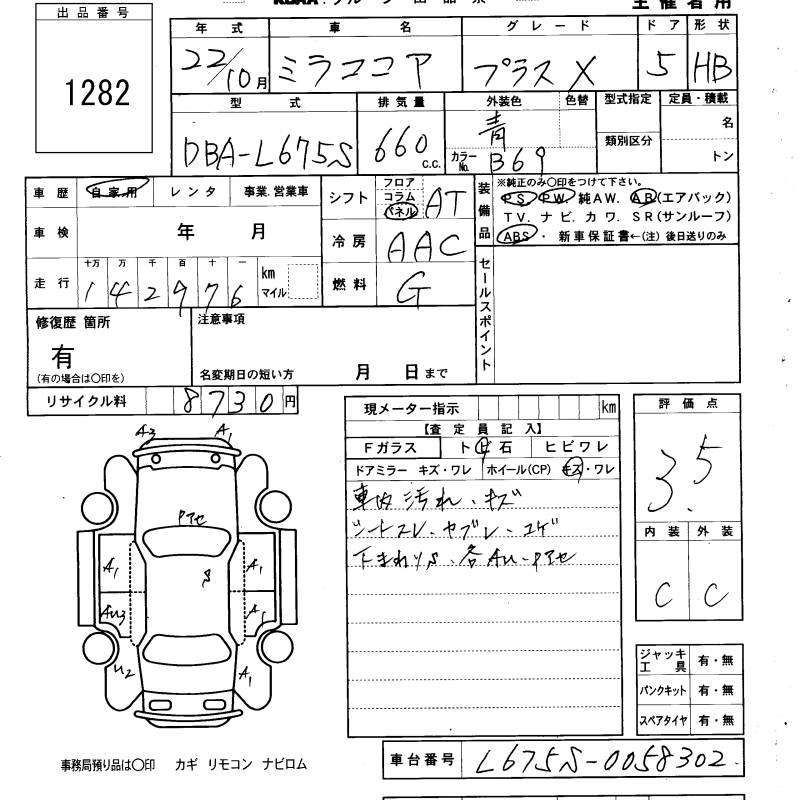 出品番号
1282
主催者用
年式 車名 グレード ドア 形状
22/10月 ミラココア プラスX 5 HB
型式 排気量 外装色 色替 型式指定 定員・積載
DBA-L675S 660 c.c. 青 カラーNo. B69 類別区分 名 トン
車歴 自家用 レンタ 事業.営業車
車検 年 月
走行 十万 万 千 百 十 一 km マイル
142976
シフト フロア コラム パネル AT
冷房 AAC
燃料 G
装備品 ※純正のみ○印をつけて下さい。
PS PW 純AW. AB(エアバック)
TV. ナビ. カワ. SR(サンルーフ)
ABS・ 新車保証書←(注) 後日送りのみ
セールスポイント
修復歴 箇所
有
(有の場合は○印を)
注意事項
名変期日の短い方 月 日まで
リサイクル料 8730円
現メーター指示 km
【査定員記入】
Fガラス トビ石 ヒビワレ
ドアミラー キズ・ワレ ホイール(CP) キズ・ワレ
車内汚れ、キズ
シートスレ、ヤブレ、コゲ
下まわりS、各AU、Pアセ
評価点
3.5
内装 外装
C C
A3 A1
Pアセ
A1 S A1
AU3 A1
U2
ジャッキ工具 有・無
パンクキット 有・無
スペアタイヤ 有・無
車台番号 L675S-0058302
事務局預り品は○印 カギ リモコン ナビロム